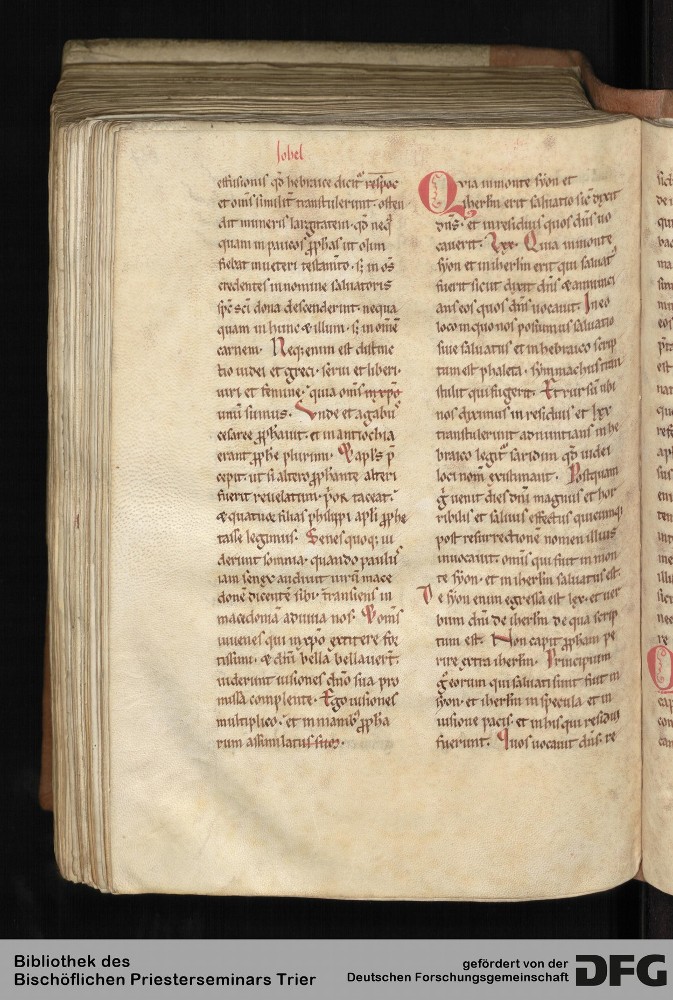 Iohel
effusionis qd̄ hebraice dicit᷑ respoc
et om̄s similit̄ transtulerunt. osten
dit muneris largitatem. qd̄ neq᷒
quam in paucos ꝓphās ut olim
fiebat in ueteri testam̄to. sꝫ in om̄s
credentes in nomine saluatoris
sp̄c sc̄i dona descenderint. nequa
quam in hunc & illum. sꝫ in om̄e
carnem. Neq; enim est distinc
tio iudei et greci. serui et liberi.
uiri et femine. quia om̄s in xp̄o
unū sumus. Vnde et agabus
cesaree ꝓphauit. et in antiochia
erant ꝓphe plurimi.
cepit. ut si altero ꝓphante alteri
fuerit reuelatum. p̄or taceat.
& quatuor filias philippi apl̄i ꝓphe
tasse legimus. Senes quoq; ui
derunt somnia. quando paulus
iam senex audiuit uirū mace
donē dicentē sibi. transiens in
macedoniā adiuua nos. om̄s
iuuenes qui in xp̄o extitere for
tissimi. & cħm bella bellauert̄.
uiderunt uisiones dn̄o sua pro
missa complente. Ego uisiones
multiplico. et in manib᷒ ꝓpha
rum assimilatus sum.
Quia in monte syon et
iherlm̄ erit saluatio sic̄ dixit
dn̄s. et in residuis quos dn̄s uo
cauerit. Lxx. Quia in monte
syon et in iherlm̄ erit qui saluat᷑
fuerit sicut dixit dn̄s & annunci
ans eos quos dn̄s uocauit. In eo
loco in quo nos posuimus saluatio
siue saluatus et in hebraico scrip
tum est phaleta. symmachus tran
stulit qui fugerit. Et rursū ubi
nos diximus in residuis et lxx
transtulerunt adnuntians in he
braico legit᷑ saridim. qd̄ iudei
loci nom̄ existimant. Postquam
g̊ uenit dies dn̄i magnus et hor
ribilis et saluus effectus quicumq᷒
post resurrectionē nomen illius
inuocauit. om̄s qui fuit in mon
te syon. et in iherlm̄ saluatus est.
De syon enim egressa est lex. et uer
bum dn̄i de iherlm̄ de qua scrip
tum est. Non capit ꝓpham pe
rire extra iherlm̄. Principium
g̊ eorum qui saluati sunt fuit in
syon. et iherlm̄ in specula et in
uisione pacis. et in his qui residui
fuerunt. Quos uocauit dn̄s. re
Bibliothek des
Bischöflichen Priesterseminars Trier
gefördert von der
Deutschen Forschungsgemeinschaft
DFG